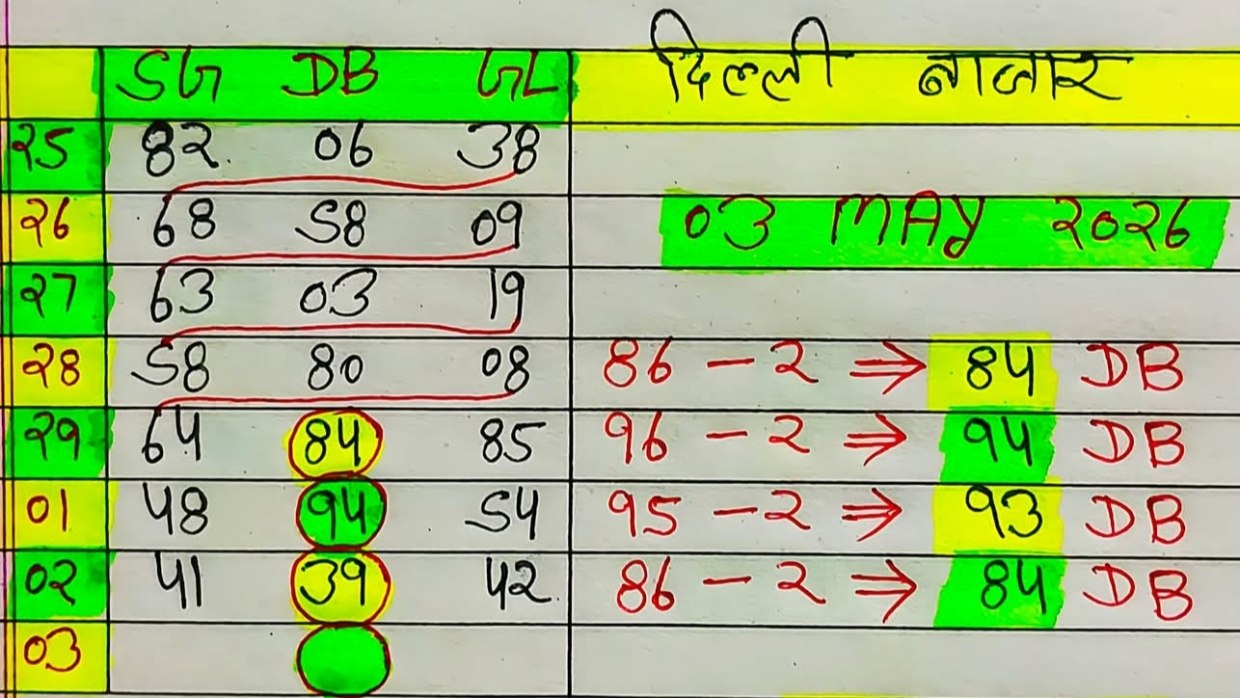 SG DB GL दिल्ली बाजार
25 82. 06 38
26 68 58 09 03 MAY 2026
27 63 03 19
28 58 80 08 86 - 2 ⇒ 84 DB
29 64 84 85 96 - 2 ⇒ 94 DB
01 48 94 54 95 - 2 ⇒ 93 DB
02 41 39 42. 86 - 2 ⇒ 84 DB
03